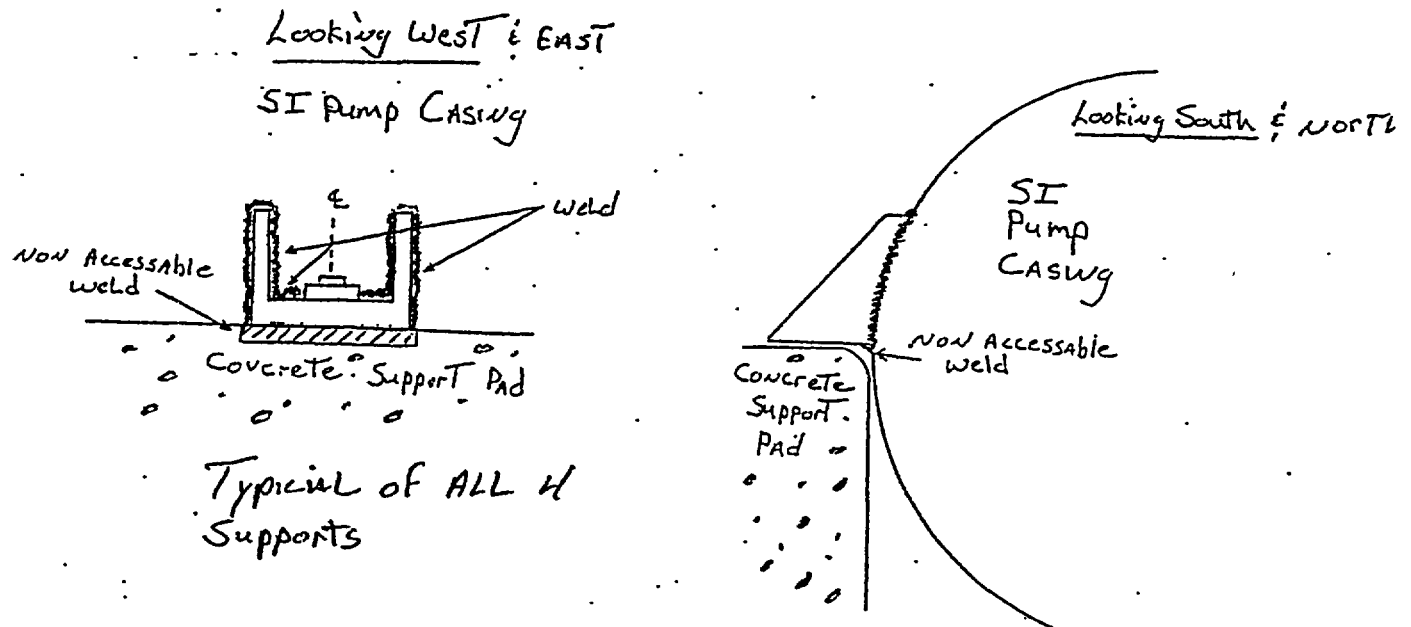 Looking West & EAST
SI Pump CASING
℄
Weld
NON Accessable
Weld
Concrete Support Pad
Typicial of ALL 4
Supports
Looking South & North
SI
Pump
CASING
NON Accessable
Weld
Concrete
Support
PAd